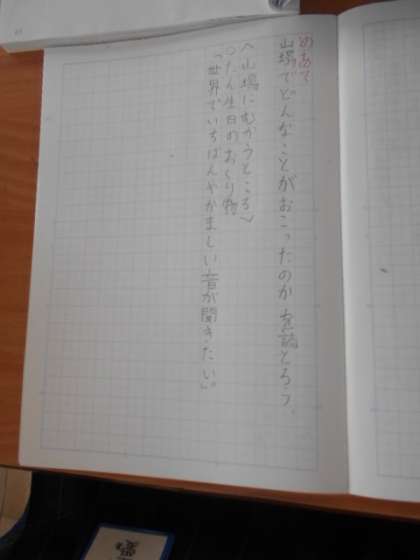 めあて
山場でどんなことがおこったのか読みとろう。
〈山場にむかうところ〉
○たん生日のおくり物
「世界でいちばんやかましい音が聞きたい。」